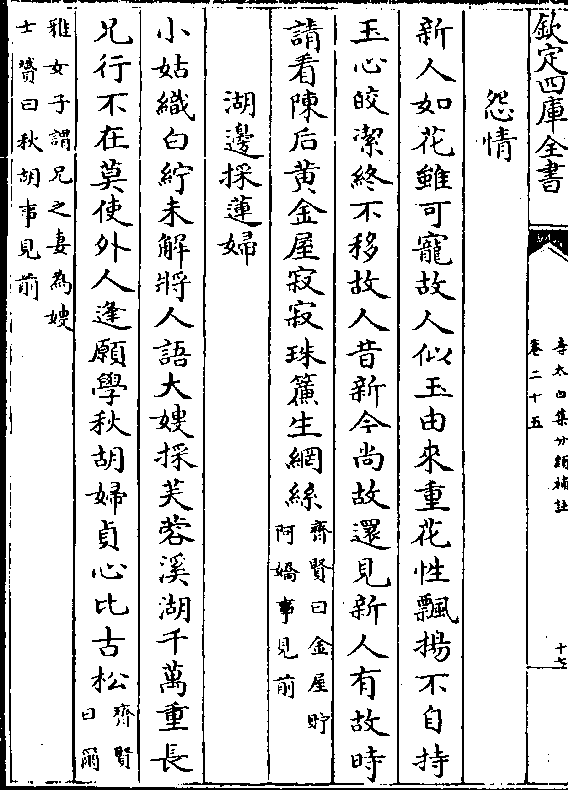 欽定四庫全書
李太白集分類補註
卷二十五
十七
怨情
新人如花雖可寵故人似玉由來重花性飄揚不自持
玉心皎潔終不移故人昔新今尚故還見新人有故時
請看陳后黄金屋寂寂珠簾生網絲齊賢曰金屋貯
阿嬌事見前
湖邊採蓮婦
小姑織白紵未解將人語大嫂採芙蓉溪湖千萬重長
兄行不在莫使外人逢願學秋胡婦貞心比古松齊賢
曰爾
雅女子謂兄之妻為嫂
士贇曰秋胡事見前